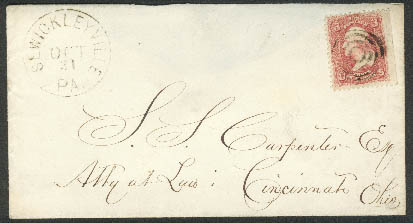 SEWICKLEYVILLE
OCT
31
PA
3 3
S. S. Carpenter Esq
Atty at Law :  Cincinnati
Ohio,